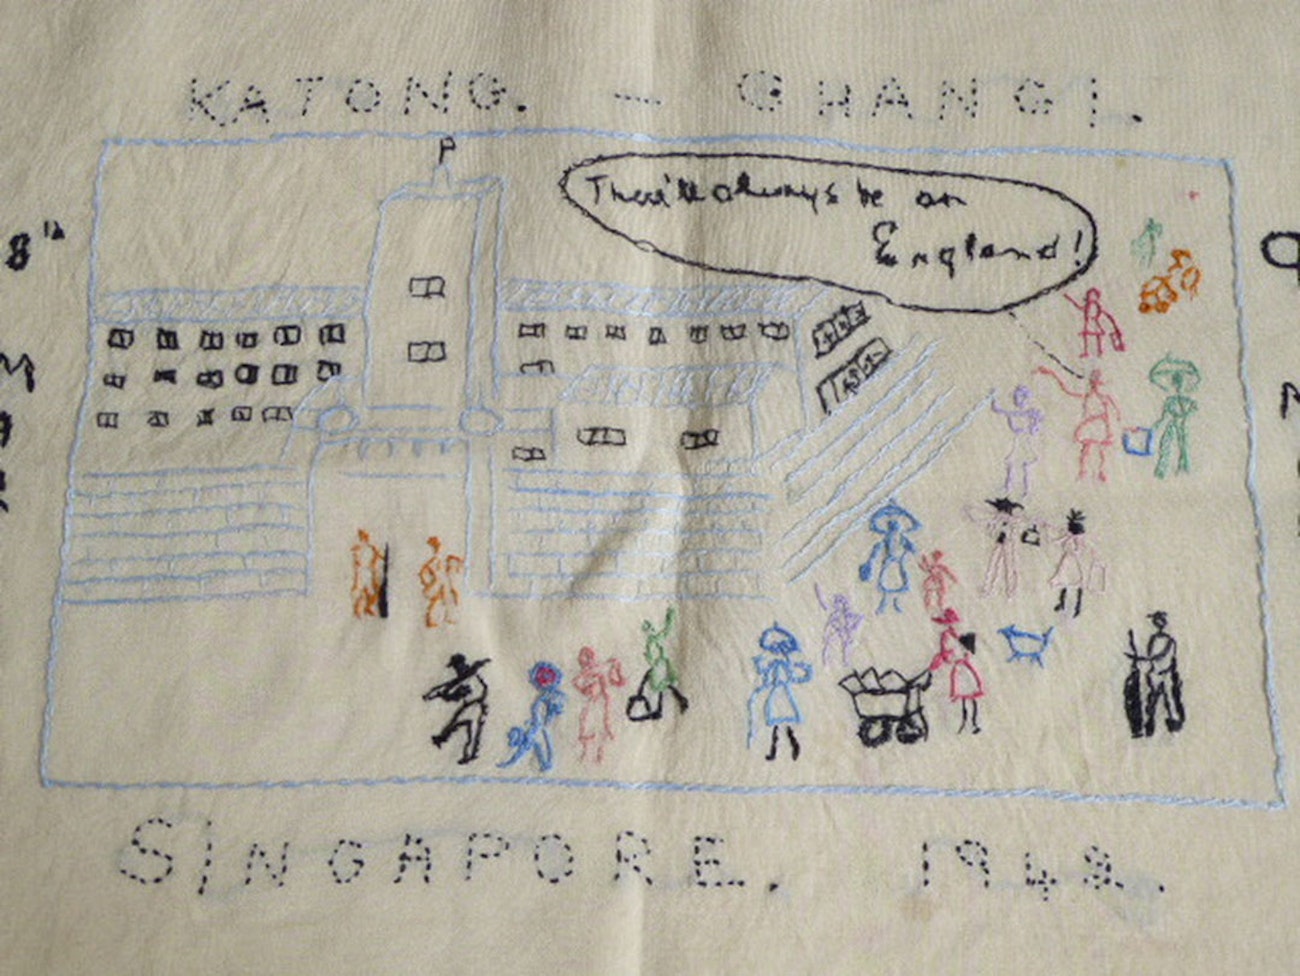 KATONG. — CHANGI.
There'll always be an
England!
8th
SINGAPORE. 1942.